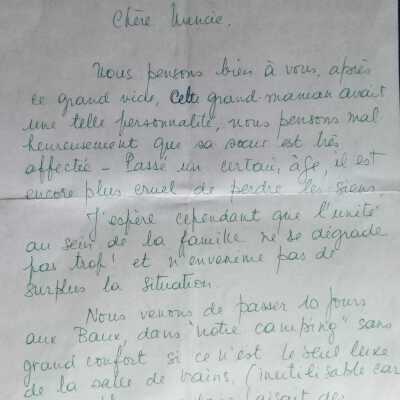 Chère Muncie.
Nous pensons bien à vous, après
ce grand vide, cette grand-maman avait
une telle personnalité, nous pensons mal
heureusement que sa sœur est très
affectée - Passé un certain, âge, il est
encore plus cruel de perdre les siens
J'espère cependant que l'unité
au sein de la famille ne se dégrade
pas trop! et n'envenime pas de
surplus la situation.
Nous venons de passer 10 jours
aux Baux, dans "notre camping" sans
grand confort si ce n'est le seul luxe
de la salle de bains, (inutilisable car